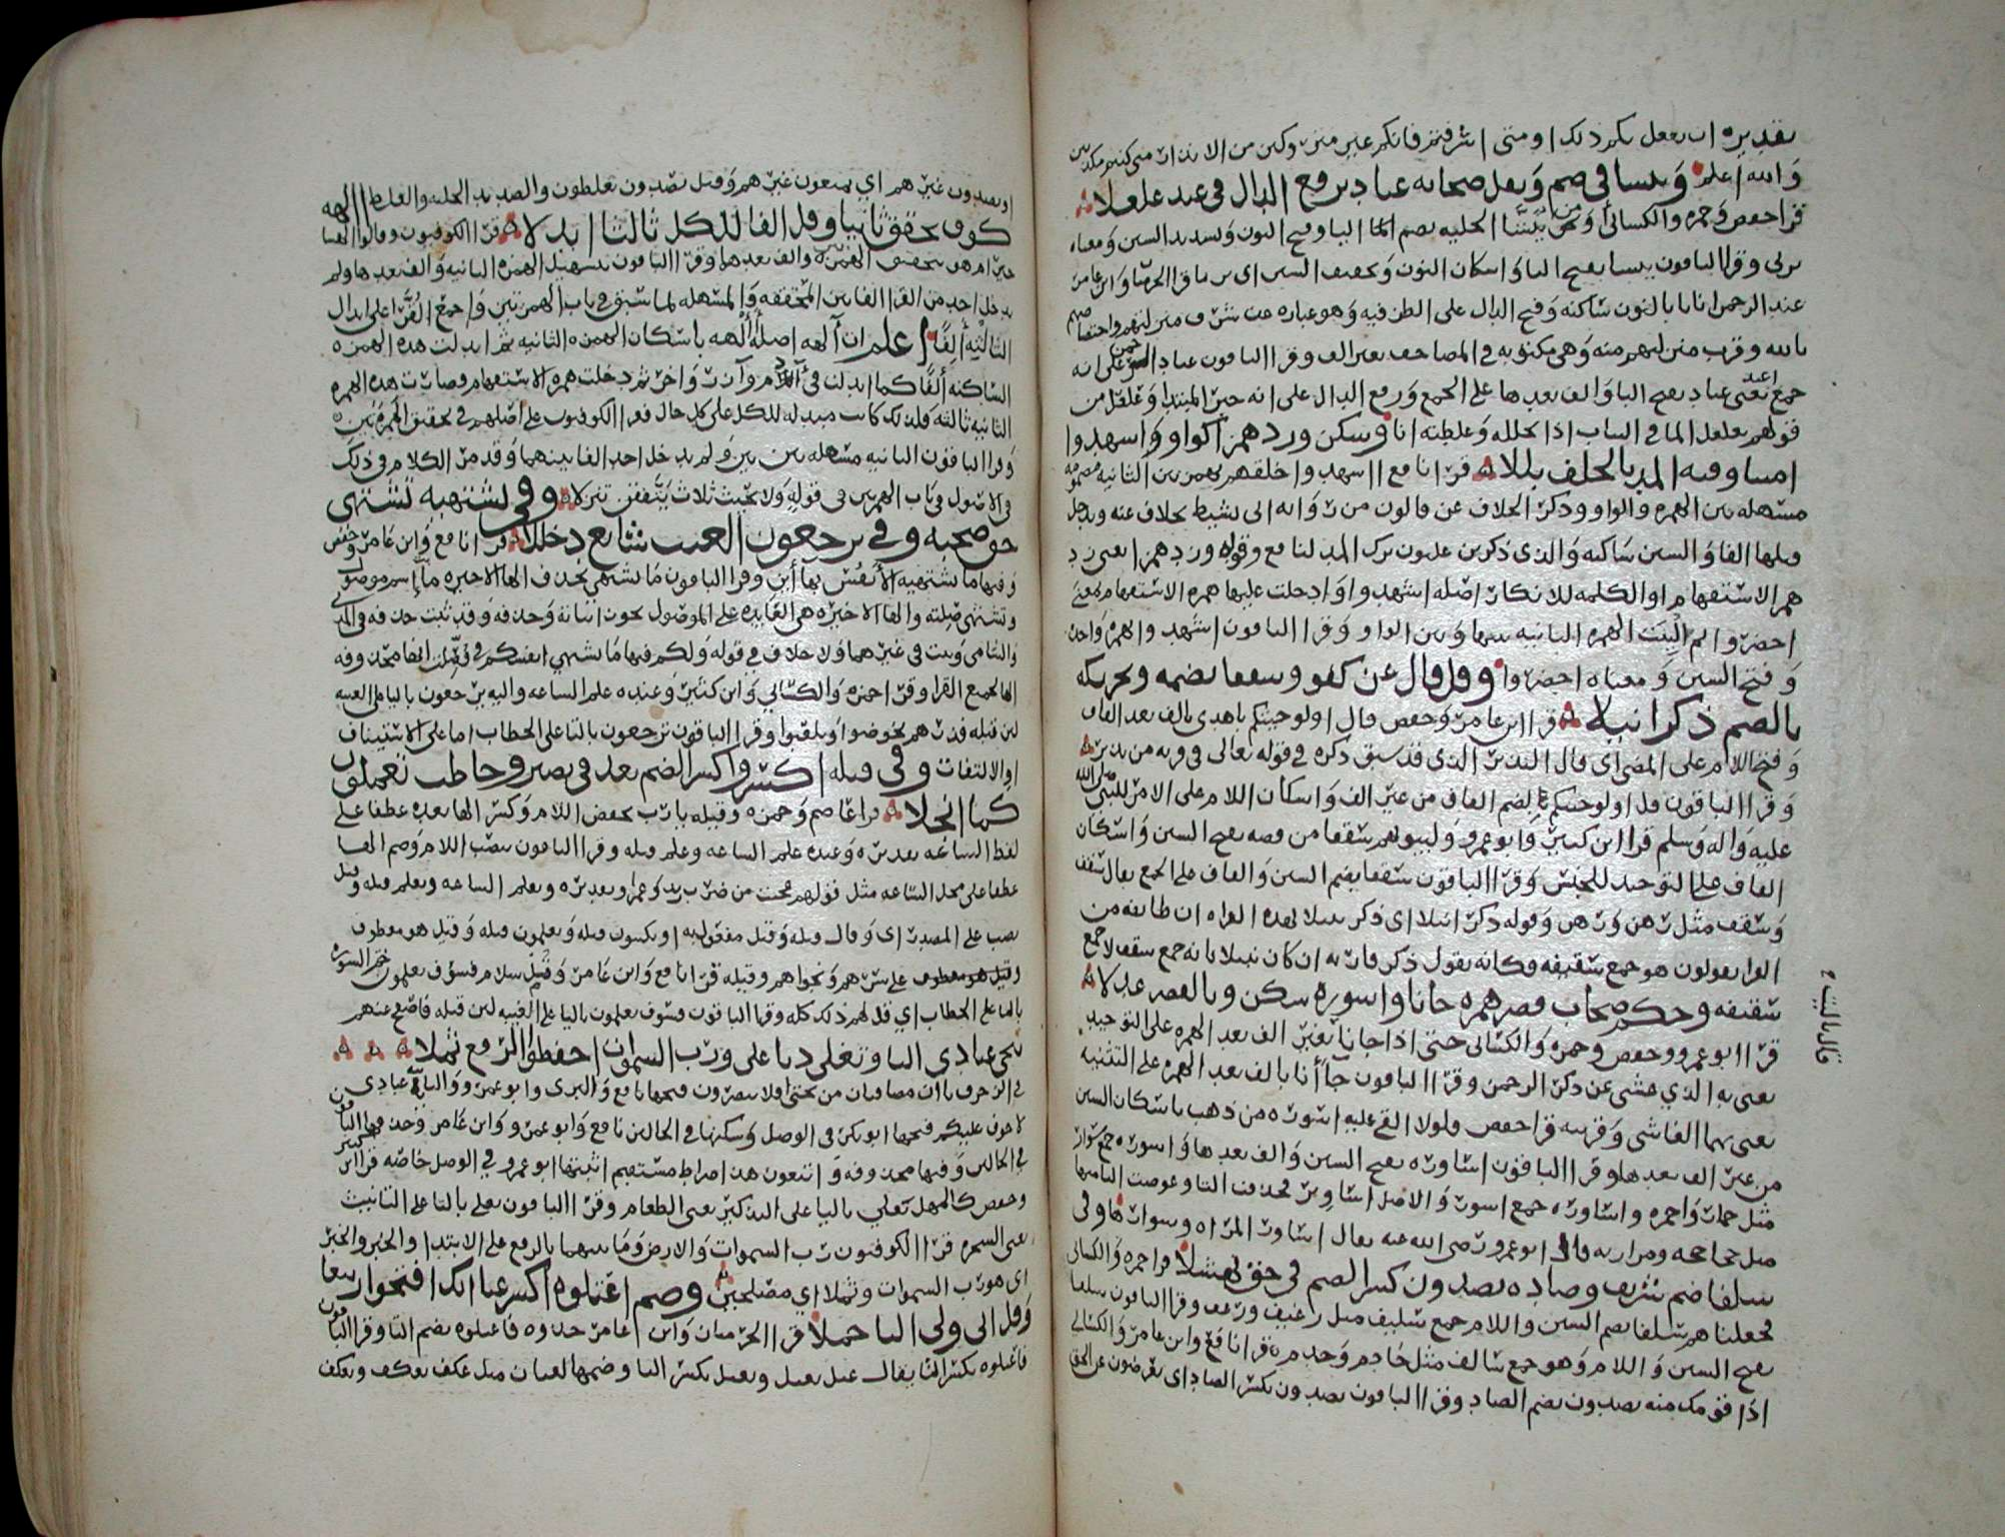 تقديره ان يفعل بكم ذلك او متى اشرفتم فانكم غير منزوكين من الانذارات متى كنتم مكذبين
والله اعلم وينشا في ضم وثقل صحابه عباد برفع الدال في عند غلغلا
قرا حفص وحمزه والكسائي اومن ينشا في الحليه بضم اليا وفتح النون وتشديد الشين ومعناه
يربى وقرا الباقون ينشا بفتح اليا واسكان النون وتخفيف الشين اي يربا قرا الحرميان وابن عامر
عند الرحمن اناثا بالنون ساكنه وفتح الدال على الظرفيه وهو عباره عن شرف منزلتهم واختصاصهم
بالله وقرب منزلتهم منه وهي مكتوبه في المصاحف بغير الف وقرا الباقون عباد الرحمن على انه
جمع عبد يعني عباد بفتح البا والف بعدها على الجمع ورفع الدال على انه خبر المبتدا وغلغل من
قولهم تغلغل الما في النبات اذا تخلله وغلغلته انا وسكن وزد همزا كواو اوشهدوا
امينا وفيه المد بالخلف بللا قرا نافع ااشهدوا خلقهم بهمزتين الثانيه مضمومه
مسهله بين الهمزه والواو وذكر الخلاف عن قالون من روايه ابي نشيط بخلاف عنه ويدخل
قبلها الفا والشين ساكنه والذي ذكر ابن غلبون ترك المد لنافع وقوله وزد همزا يعني زد
همز الاستفهام او الكلمه للانكار اصله اشهدوا اي ادخلت عليها همزه الاستفهام بمعنى
احضروا ثم لينت الهمزه الثانيه بينها وبين الواو وقرا الباقون اشهدوا بهمزه واحده
وفتح الشين ومعناه احضروا وقل قال عن كفو وسقفا بضمه وتحريكه
بالضم ذكر انبلا قرا ابن عامر وحفص قال اولو جئتكم باهدى بالف بعد القاف
وفتح اللام على المضي اي قال النذير الذي قد سبق ذكره في قوله تعالى في قريه من نذير
وقرا الباقون قل اولو جئتكم بضم القاف من غير الف واسكان اللام على الامر للنبي صلى الله
عليه واله وسلم قرا ابن كثير وابو عمرو ولبيوتهم سقفا من فضه بفتح السين واسكان
القاف على التوحيد للجنس وقرا الباقون سقفا بضم السين والقاف على الجمع يقال سقف
وسقف مثل رهن ورهن وقوله ذكر انبلا اي ذكر نبيلا لهذه القراه ان طايفه من
القرا يقولون هو جمع سقيفه فكانه يقول ذكر فان به ان كان نبيلا بانه جمع سقف لا جمع
سقيفه وحكم صحاب قصر همزه جانا واسوره سكن وبالقصر عدلا
قرا ابو عمرو وحفص وحمزه والكسائي حتى اذا جانا بغير الف بعد الهمزه على التوحيد
يعني به الذي عشى عن ذكر الرحمن وقرا الباقون جاانا بالف بعد الهمزه على التثنيه
يعني بهما العاشي وقرينه قرا حفص فلولا القي عليه اسوره من ذهب باسكان السين
من غير الف بعدها وقرا الباقون اساوره بفتح السين والف بعدها واسوره جمع سوار
مثل حمار واحمره واساوره جمع اسوره والاصل اساوير فحذفت اليا وعوضت الها منها
مثل جحاجحه ومرازبه قال ابو عمرو رضي الله عنه يقال اساور المراه وسوارها وفي
سلفا ضم شريف وصاده يصدون كسر الضم في حق نهشلا قرا حمزه والكسائي
فجعلناهم سلفا بضم السين واللام جمع سليف مثل رغيف ورغف وقرا الباقون سلفا
بفتح السين واللام وهو جمع سالف مثل خادم وخدم قرا نافع وابن عامر والكسائي
اذا قومك منه يصدون بضم الصاد وقرا الباقون يصدون بكسر الصاد اي يعرضون عن الحق
او يصدون غيرهم اي يمنعون غيرهم وقيل يصدون يغلظون والتصديد الجلبه والغلط االهه
كوف يحقق ثانيا وقل الفا للكل ثالثا ابدلا قرا الكوفيون وقالوا االهتنا
خير ام هو بتحقيق الهمزه والف بعدها وقرا الباقون بتسهيل الهمزه الثانيه والف بعدها ولم
يدخل احد من القرا الفا بين المحققه والمسهله لما سبق في باب الهمزتين واجمع القرا على ابدال
الثالثه الفا اعلم ان آلهه اصله أألهه باسكان الهمزه الثانيه ثم ابدلت هذه الهمزه
الساكنه الفا كما ابدلت في آدم وآزر وآخر ثم دخلت همزه الاستفهام فصارت هذه الهمزه
الثانيه ثالثه فلذلك كانت مبدله للكل على كل حال فقرا الكوفيون على اصلهم في تحقيق الهمزتين
وقرا الباقون الثانيه مسهله بين بين ولم يدخل احد الفا بينهما وقد مر الكلام في ذلك
في الاصول في باب الهمزتين في قوله ولا بحيث ثلاث يتفقن تنزلا وفي تشتهيه تشتهي
حق صحبه وفي يرجعون الغيب شايع دخللا قرا نافع وابن عامر وحفص
وفيها ما تشتهيه الانفس بهاين وقرا الباقون ما تشتهي بحذف الها الاخيره ما اسم موصول
وتشتهي صلته والها الاخيره هي العايده على الموصول يجوز اثباته وحذفه وقد ثبت حذفه في المدني
والشامي وثبت في غيرهما ولا خلاف في قوله ولكم فيها ما تشتهي انفسكم في فصلت انها محذوفه
الها لجميع القرا وقرا حمزه والكسائي وابن كثير وعنده علم الساعه واليه يرجعون باليا على الغيبه
لان قبله فذرهم يخوضوا ويلعبوا وقرا الباقون ترجعون بالتا على الخطاب اما على الاستيناف
او الالتفات وفي قيله اكسر واكسر الضم بعد في نصير وخاطب تعلمون
كما انجلا قرا عاصم وحمزه وقيله يا رب بخفض اللام وكسر الها بعده عطفا على
لفظ الساعه تقديره وعنده علم الساعه وعلم قيله وقرا الباقون بنصب اللام وضم الها
عطفا على محل الساعه مثل قولهم عجبت من ضرب زيد وعمرا وتقديره ويعلم الساعه ويعلم قيله وقيل
نصب على المصدر اي وقال قيله وقيل مفعول به اي ويكتبون قيله ويعلمون قيله وقيل هو معطوف
وقيل هو معطوف على سرهم ونجواهم وقيله قرا نافع وابن عامر وقل سلام فسوف تعلمون اخر السوره
بالتا على الخطاب اي قل لهم ذلك كله وقرا الباقون فسوف يعلمون باليا على الغيبه لان قبله فاصفح عنهم
بتحتي عبادي اليا ويغلي دنا على ورب السموات اخفضوا الرفع ثملا
في الزخرف ياان مضافان من تحتي افلا تبصرون فتحها نافع والبزي وابو عمرو والثانيه عبادي
لا خوف عليكم فتحها ابو بكر في الوصل وسكنها في الحالين نافع وابو عمرو وابن عامر وحذفها الباقون
في الحالين وفيها محذوفه واتبعون هذا صراط مستقيم اثبتها ابو عمرو في الوصل خاصه قرا ابن كثير
وحفص كالمهل يغلي باليا على التذكير يعني الطعام وقرا الباقون تغلي بالتا على التانيث
يعني الشجره قرا الكوفيون رب السموات والارض وما بينهما بالرفع على الابتدا والخبر والخبر
اي هو رب السموات وثملا اي مصلحين وضم اعتلوه اكسر غنا انك افتحوا ربيعا
وقل اني ولي اليا حملا قرا الحرميان وابن عامر خذوه فاعتلوه بضم التا وقرا الباقون
فاعتلوه بكسر التا يقال عتل يعتل ويعتل بكسر التا وضمها لغتان مثل عكف يعكف ويعكف